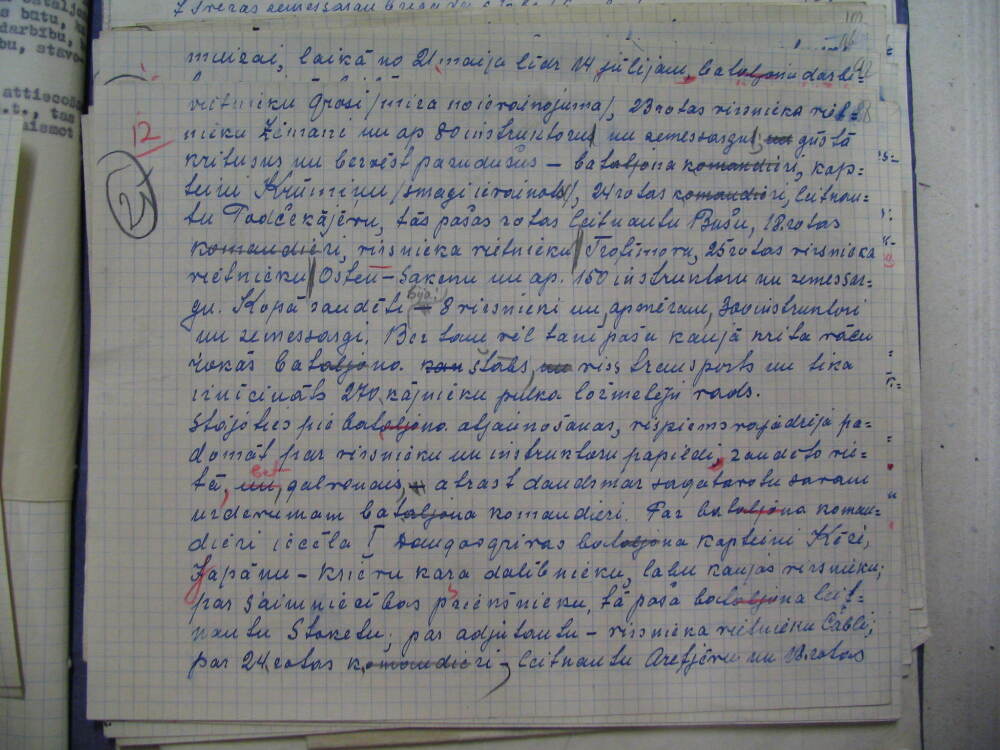 muižai, laikā no 21 maija līdz 14 jūlijam, bataljona darbi-
12
vietnieku Grosi /mira no ievainojuma/, 23 rotas virsnieka viet-
nieku Zīmani un ap 80 instruktoru un zemessargu; gūstā
kritušus un bezvēst pazudušus – bataljona komandieri, kap-
teini Krūmiņu /smagi ievainots/, 24 rotas komandieri, leitnan-
2)
tu Podčekājevu, tās pašas rotas leitnantu Bušu, 18. rotas
komandieri, virsnieka vietnieku Trofimovu, 25 rotas virsnieka
vietnieku Osten-Sakenu un ap. 150 instruktoru un zemessar-
gu. Kopā zaudēti bija: 8 virsnieki un, apmēram, 300 instruktori
un zemessargi. Bez tam vēl tanī pašā kaujā krita vācu
rokās bataljona štābs, viss transports un tika
iznīcināts 270 kājnieku pulka ložmetēju vads.
Stājoties pie bataljona atjaunošanas, vispirms vajadzēja pa-
domāt par virsnieku un instruktoru papildi, zaudēto vie-
bet
tā, un, galvenais, atrast daudzmaz sagatavotu savam
uzdevumam bataljona komandieri. Par bataljona koman-
dieri iecēla I Daugavgrīvas bataljona kapteini Ķēci,
Japānu – krievu kara dalībnieku, labu kaujas virsnieku;
par saimniecības priekšnieku, tā paša bataljona leit-
nantu Stoketu; par adjutantu – virsnieka vietnieku Cābli;
par 24 rotas komandieri – leitnantu Arefjevu un 18. rotas